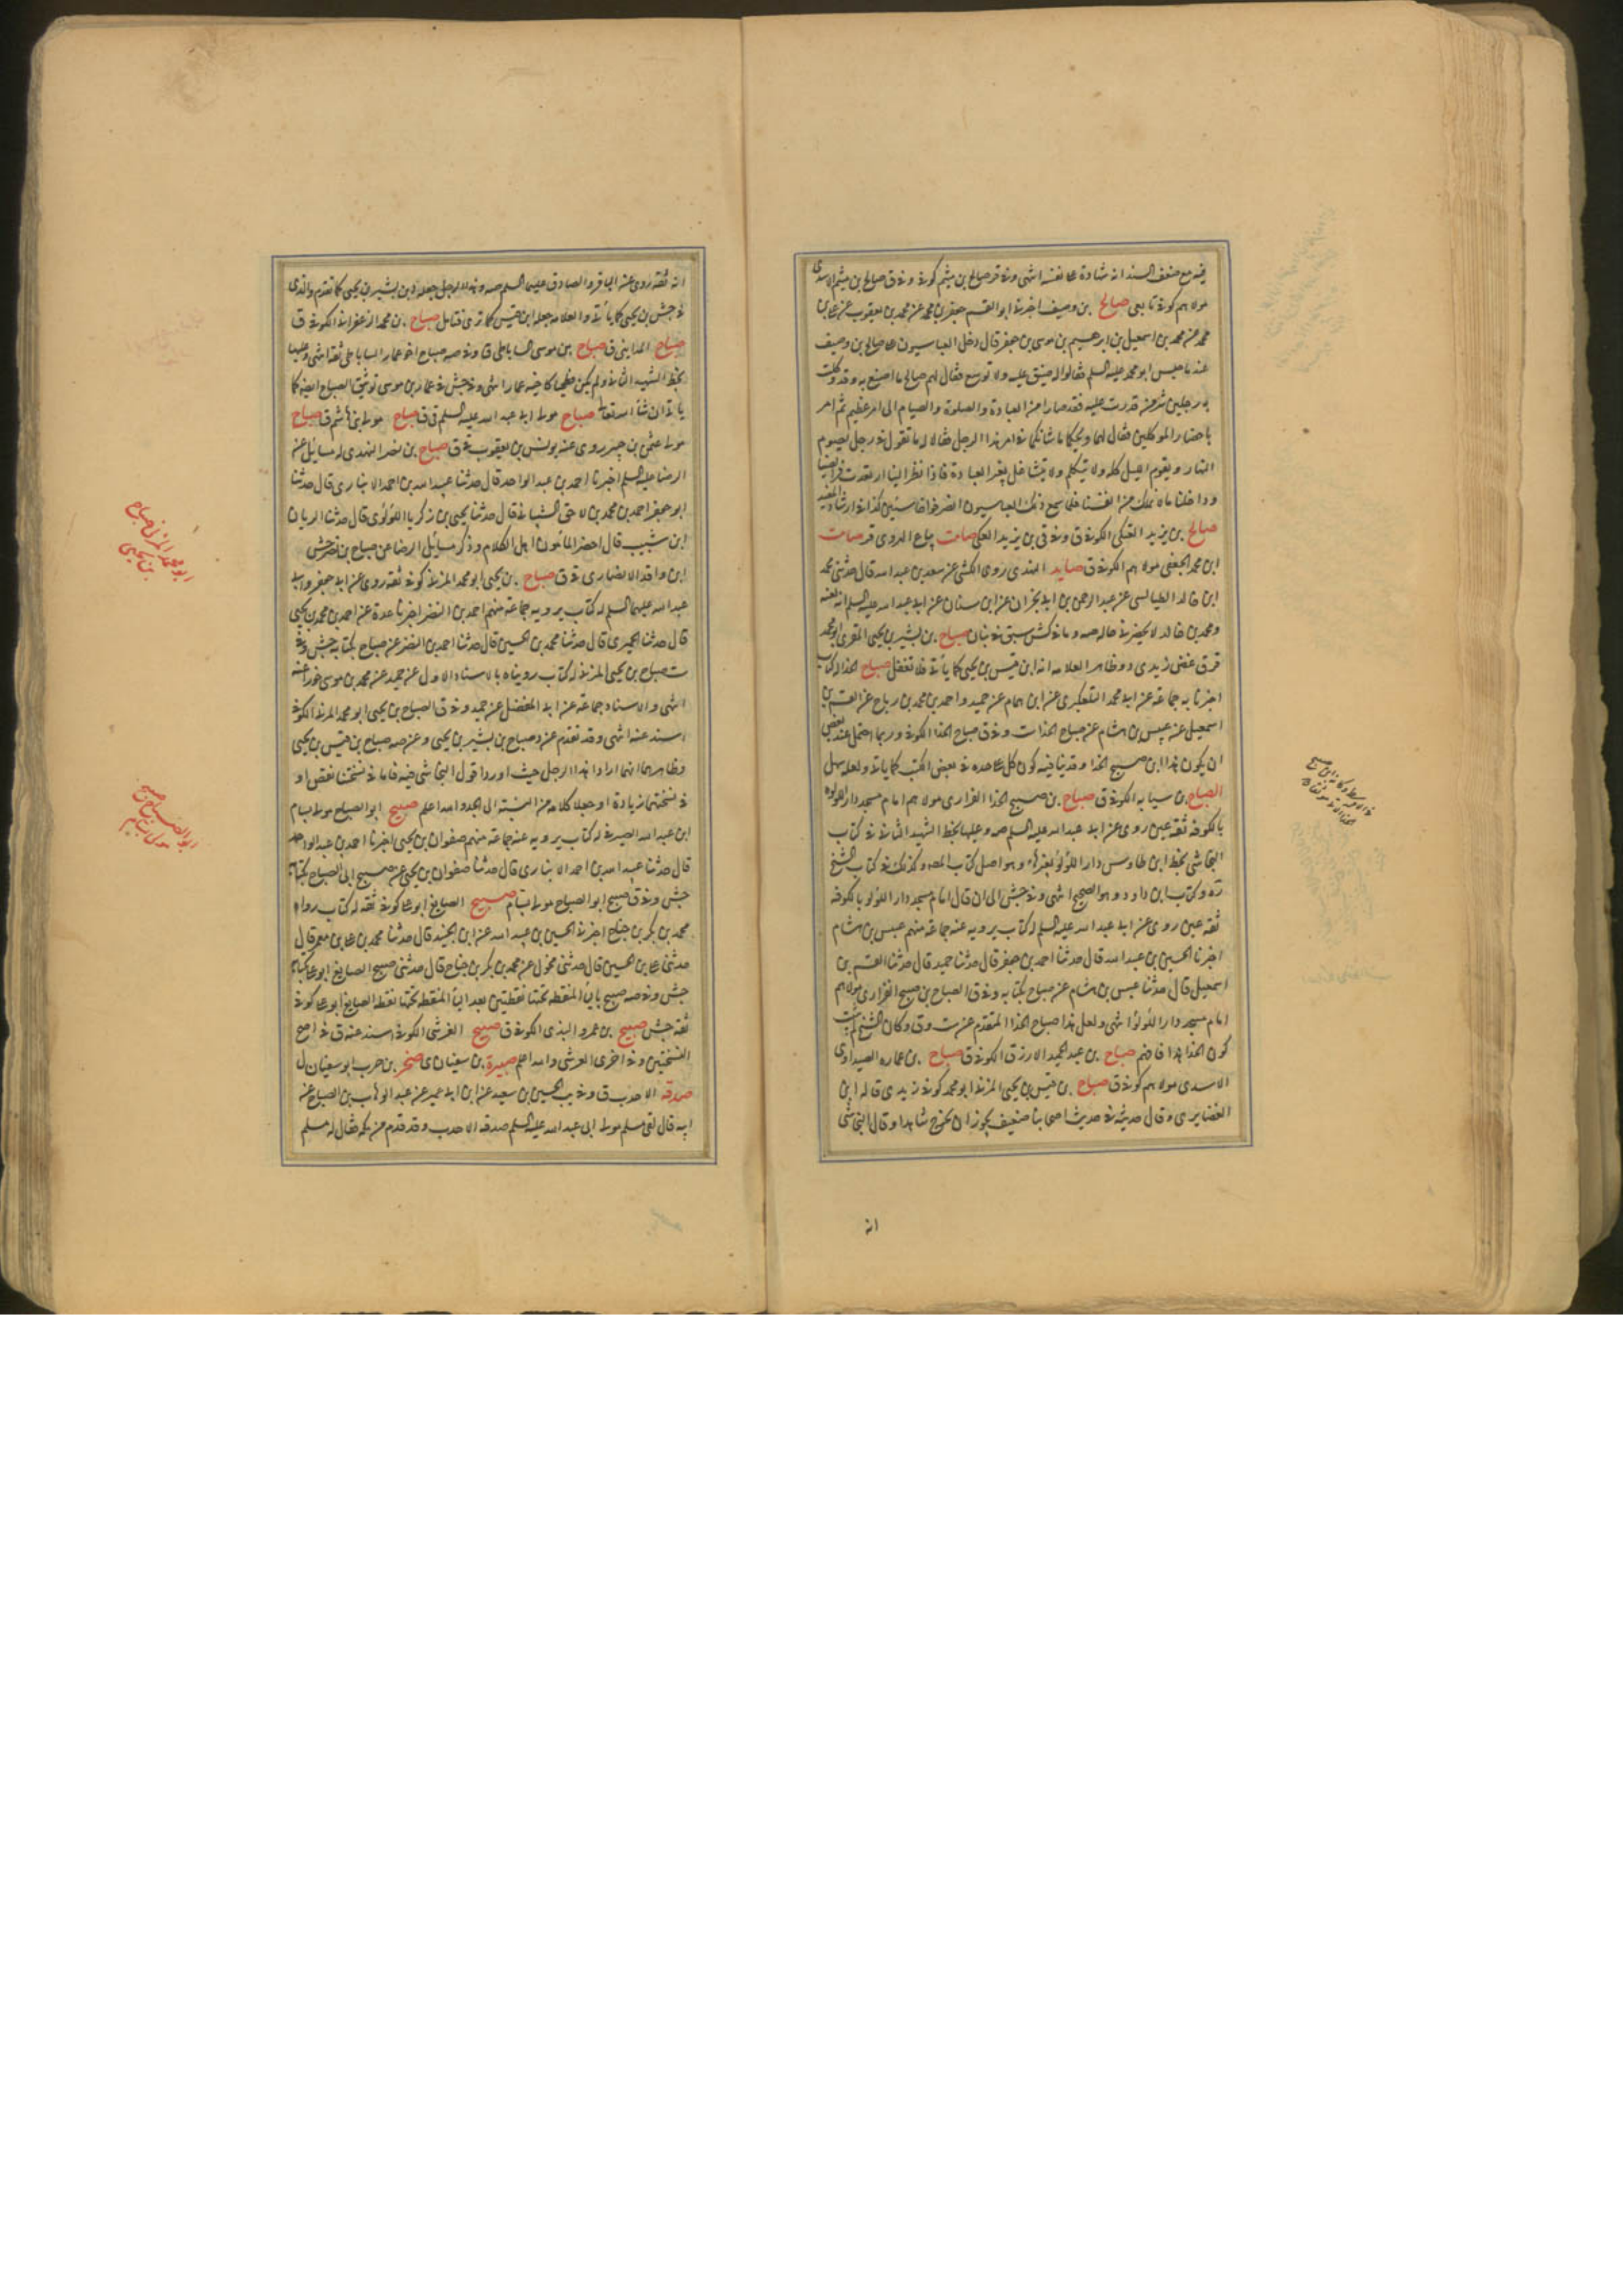 فيه مع ضعف السند انه شهادة على نفسه انتهى وفي قر صالح بن ميثم كوفي وفي ق صالح بن ميثم الاسدي
مولاهم كوفي تابعي صالح بن وصيف اخبرني ابو القسم جعفر بن محمد عن محمد بن يعقوب عن علي بن
محمد عن محمد بن اسمعيل بن ابرهيم بن موسى بن جعفر قال دخل العباسيون على صالح بن وصيف
عند ما حبس ابو محمد عليه السلم فقالوا له ضيق عليه ولا توسع فقال لهم صالح ما اصنع به وقد وكلت
به رجلين شر من قدرت عليه فقد صارا من العبادة والصلوة والصيام الى امر عظيم ثم امر
باحضار الموكلين فقال لهما ويحكما ما شانكما في امر هذا الرجل فقالا له ما تقول في رجل يصوم
النهار ويقوم الليل كله ولا يتكلم ولا يتشاغل بغير العبادة فاذا نظر الينا ارتعدت فرايصنا
وداخلنا ما لا نملك من انفسنا فلما سمع ذلك العباسيون انصرفوا خاسئين كذا في ارشاد المفيد
صالح بن يزيد العتكي الكوفي ق وفي ق بن يزيد العكي صامت بياع الهروي قر صامت
ابن محمد الجعفي مولاهم الكوفي ق صايد الهندي روى الكشي عن سعد بن عبد الله قال حدثني محمد
ابن خالد الطيالسي عن عبد الرحمن بن ابي نجران عن ابن سنان عن ابي عبد الله عليه السلم انه لعنه
ومحمد بن خالد لا يحضرني حاله صه وما في كش سبق في بنان صباح بن بشير بن يحيى المقري ابو محمد
قر ق غض زيدي د وظاهر العلامه انه ابن قيس بن يحيى كما ياتي فلا تغفل صباح الحذا له كتاب
اخبرنا به جماعة عن ابي محمد التلعكبري عن ابن همام عن حميد واحمد بن محمد بن رباح عن القسم بن
اسمعيل عن عبيس بن هشام عن صباح الحذا ست وفي ق صباح الحذا الكوفي وربما احتمل عند بعض
ان يكون هذا ابن صبيح الحذا وقد ينافيه كون كل على حده في بعض الكتب كما ياتي ولعله سهل
الصباح بن سيابه الكوفي ق صباح بن صبيح الحذا الفزاري مولاهم امام مسجد دار اللؤلؤ
بالكوفه ثقه عين روى عن ابي عبد الله عليه السلم صه وعليها بخط الشهيد الثاني في كتاب
النجاشي بخط ابن طاوس دار اللؤلؤ بغير هاء وهو اصل كتاب المصه وكذلك في كتاب الشيخ
ره وكتاب ابن داود وهو الصحيح انتهى وفي جش الى ان قال امام مسجد دار اللؤلؤ بالكوفه
ثقه عين روى عن ابي عبد الله عليه السلم له كتاب يرويه عنه جماعة منهم عبيس بن هشام
اخبرنا الحسين بن عبد الله قال حدثنا احمد بن جعفر قال حدثنا حميد قال حدثنا القسم بن
اسمعيل قال حدثنا عبيس بن هشام عن صباح بكتابه وفي ق الصباح بن صبيح الفزاري مولاهم
امام مسجد دار اللؤلؤ انتهى ولعل هذا صباح الحذا المتقدم عن ست وق وكان الشيخ لم يثبت
كون الحذا هذا فافهم صباح بن عبد الحميد الازرق الكوفي ق صباح بن عماره الصيداوي
الاسدي مولاهم كوفي ق صباح بن قيس بن يحيى المزني ابو محمد كوفي زيدي قاله ابن
الغضايري وقال حديثه في حديث اصحابنا ضعيف يجوز ان يخرج شاهدا وقال النجاشي
انه
انه ثقه روى عن الباقر والصادق عليهما السلم صه وهذا الرجل جعله د بن بشير بن يحيى كما تقدم والذي
في جش بن يحيى كما ياتي والعلامه جعله ابن قيس كما ترى فتامل صباح بن محمد الزعفراني الكوفي ق
صباح المدايني ق صباح بن موسى الساباطي ق وفي صه صباح اخو عمار الساباطي ثقه انتهى وعليها
بخط الشهيد الثاني ولم يكن فطحيا كاخيه عمار انتهى وفي جش في عمار بن موسى توثيق الصباح ايضا كما
ياتي ان شاء الله تعالى صباح مولى ابي عبد الله عليه السلم ق ق صباح مولى بني هاشم ق صباح
مولى عثمن بن جبير روى عنه يونس بن يعقوب في ق صباح بن نصر الهندي له مسايل عن
الرضا عليه السلم اخبرنا احمد بن عبد الواحد قال حدثنا عبيد الله بن احمد الانباري قال حدثنا
ابو جعفر احمد بن محمد بن لاحق الشيباني قال حدثنا يحيى بن زكريا اللؤلؤي قال حدثنا الريان
ابن شبيب قال احضر المأمون اهل الكلام وذكر مسايل الرضا عن صباح بن نصر جش
ابن واقد الانصاري في ق صباح بن يحيى ابو محمد المزني كوفي ثقه روى عن ابي جعفر وابي
عبد الله عليهما السلم له كتاب يرويه جماعة منهم احمد بن النضر اخبرنا عدة عن احمد بن محمد بن يحيى
قال حدثنا الحميري قال حدثنا محمد بن الحسين قال حدثنا احمد بن النضر عن صباح بكتابه جش وفي
ست صباح بن يحيى المزني له كتاب رويناه بالاسناد الاول عن حميد عن محمد بن موسى خورا عنه
انتهى والاسناد جماعة عن ابي المفضل عن حميد وفي ق الصباح بن يحيى ابو محمد المزني الكوفي
اسند عنه انتهى وقد تقدم عن د صباح بن بشير بن يحيى وعن صه صباح بن قيس بن يحيى
وظاهرهما انهما ارادا هذا الرجل حيث اوردا قول النجاشي فيه فاما في نسختنا نقص او
في نسختهما زيادة او جعلا كلامه من النسبة الى الجد والله اعلم صبيح ابو الصباح مولى بسام
ابن عبد الله الصيرفي له كتاب يرويه عنه جماعة منهم صفوان بن يحيى اخبرنا احمد بن عبد الواحد
قال حدثنا عبيد الله بن احمد الانباري قال حدثنا صفوان بن يحيى عن صبيح ابي الصباح بكتابه
جش وفي ق صبيح ابو الصباح مولى بسام صبيح الصايغ ابو علي كوفي ثقه له كتاب رواه
محمد بن بكر بن جناح اخبرني الحسين بن عبيد الله عن ابن الجنيد قال حدثنا محمد بن علي بن معمر قال
حدثني علي بن الحسين قال حدثني مخول عن محمد بن بكر بن جناح قال حدثني صبيح الصايغ ابو علي بكتابه
جش وفي صه صبيح بالياء المنقطه تحتها نقطتين بعد الباء المنقطه تحتها نقطه الصايغ ابو علي كوفي
ثقه جش صبيح بن عمرو البذي الكوفي ق صبيح القرشي الكوفي اسند عنه ق في اصح
النسختين وفي اخرى العرشي والله اعلم صبيرة بن سفيان ي صخر بن حرب ابو سفيان ل
صدقه الاحدب ق وفي يب الحسين بن سعيد عن ابن ابي عمير عن عبد الوهاب بن الصباح عن
ابيه قال لقى مسلم مولى ابي عبد الله عليه السلم صدقه الاحدب وقد قدم من مكه فقال له مسلم
ابو محمد المزني صباح
بن يحيى
ابو الصباح صبيح
مولى بسام